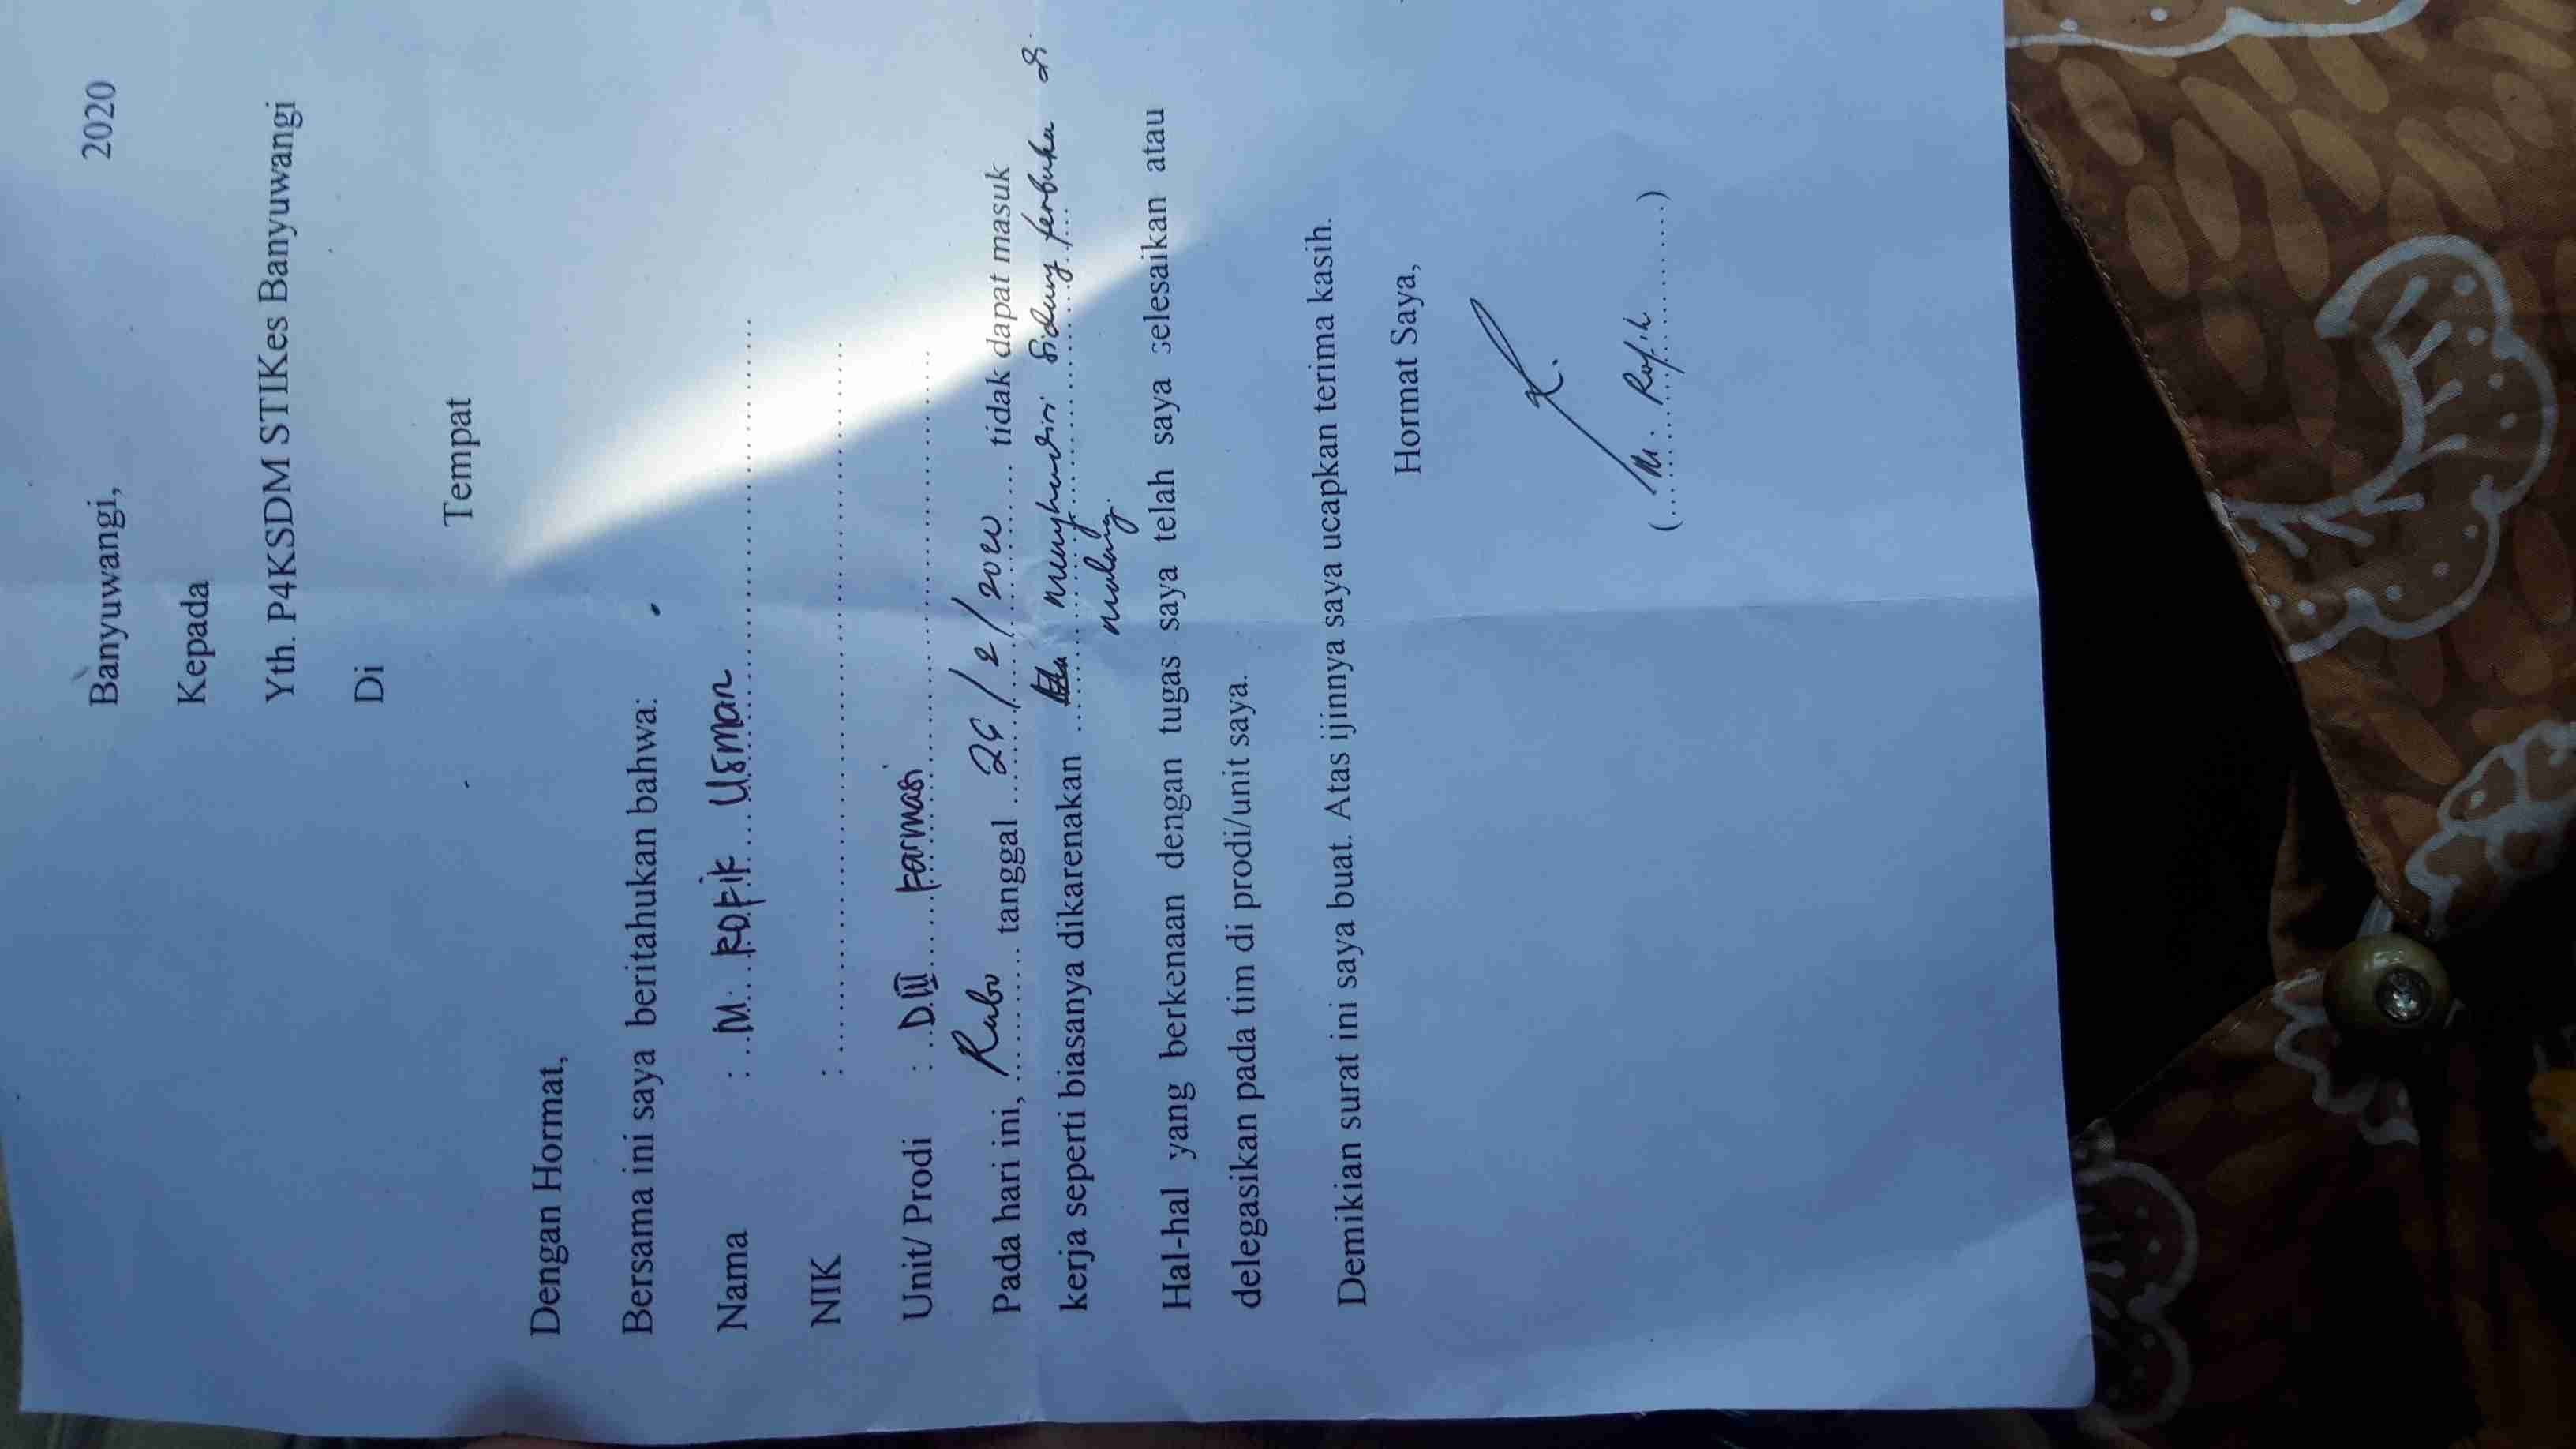 Banyuwangi, 2020
Kepada
Yth. P4KSDM STIKes Banyuwangi
Di
Tempat
Dengan Hormat,
Bersama ini saya beritahukan bahwa:
Nama : M. Rofik Usman
NIK :
Unit/ Prodi : DIII Farmasi
Pada hari ini, Rabu tanggal 26/2/2020 tidak dapat masuk
kerja seperti biasanya dikarenakan menghadiri sidang terbuka di
malang.
Hal-hal yang berkenaan dengan tugas saya telah saya selesaikan atau
delegasikan pada tim di prodi/unit saya.
Demikian surat ini saya buat. Atas ijinnya saya ucapkan terima kasih.
Hormat Saya,
(M. Rofik)